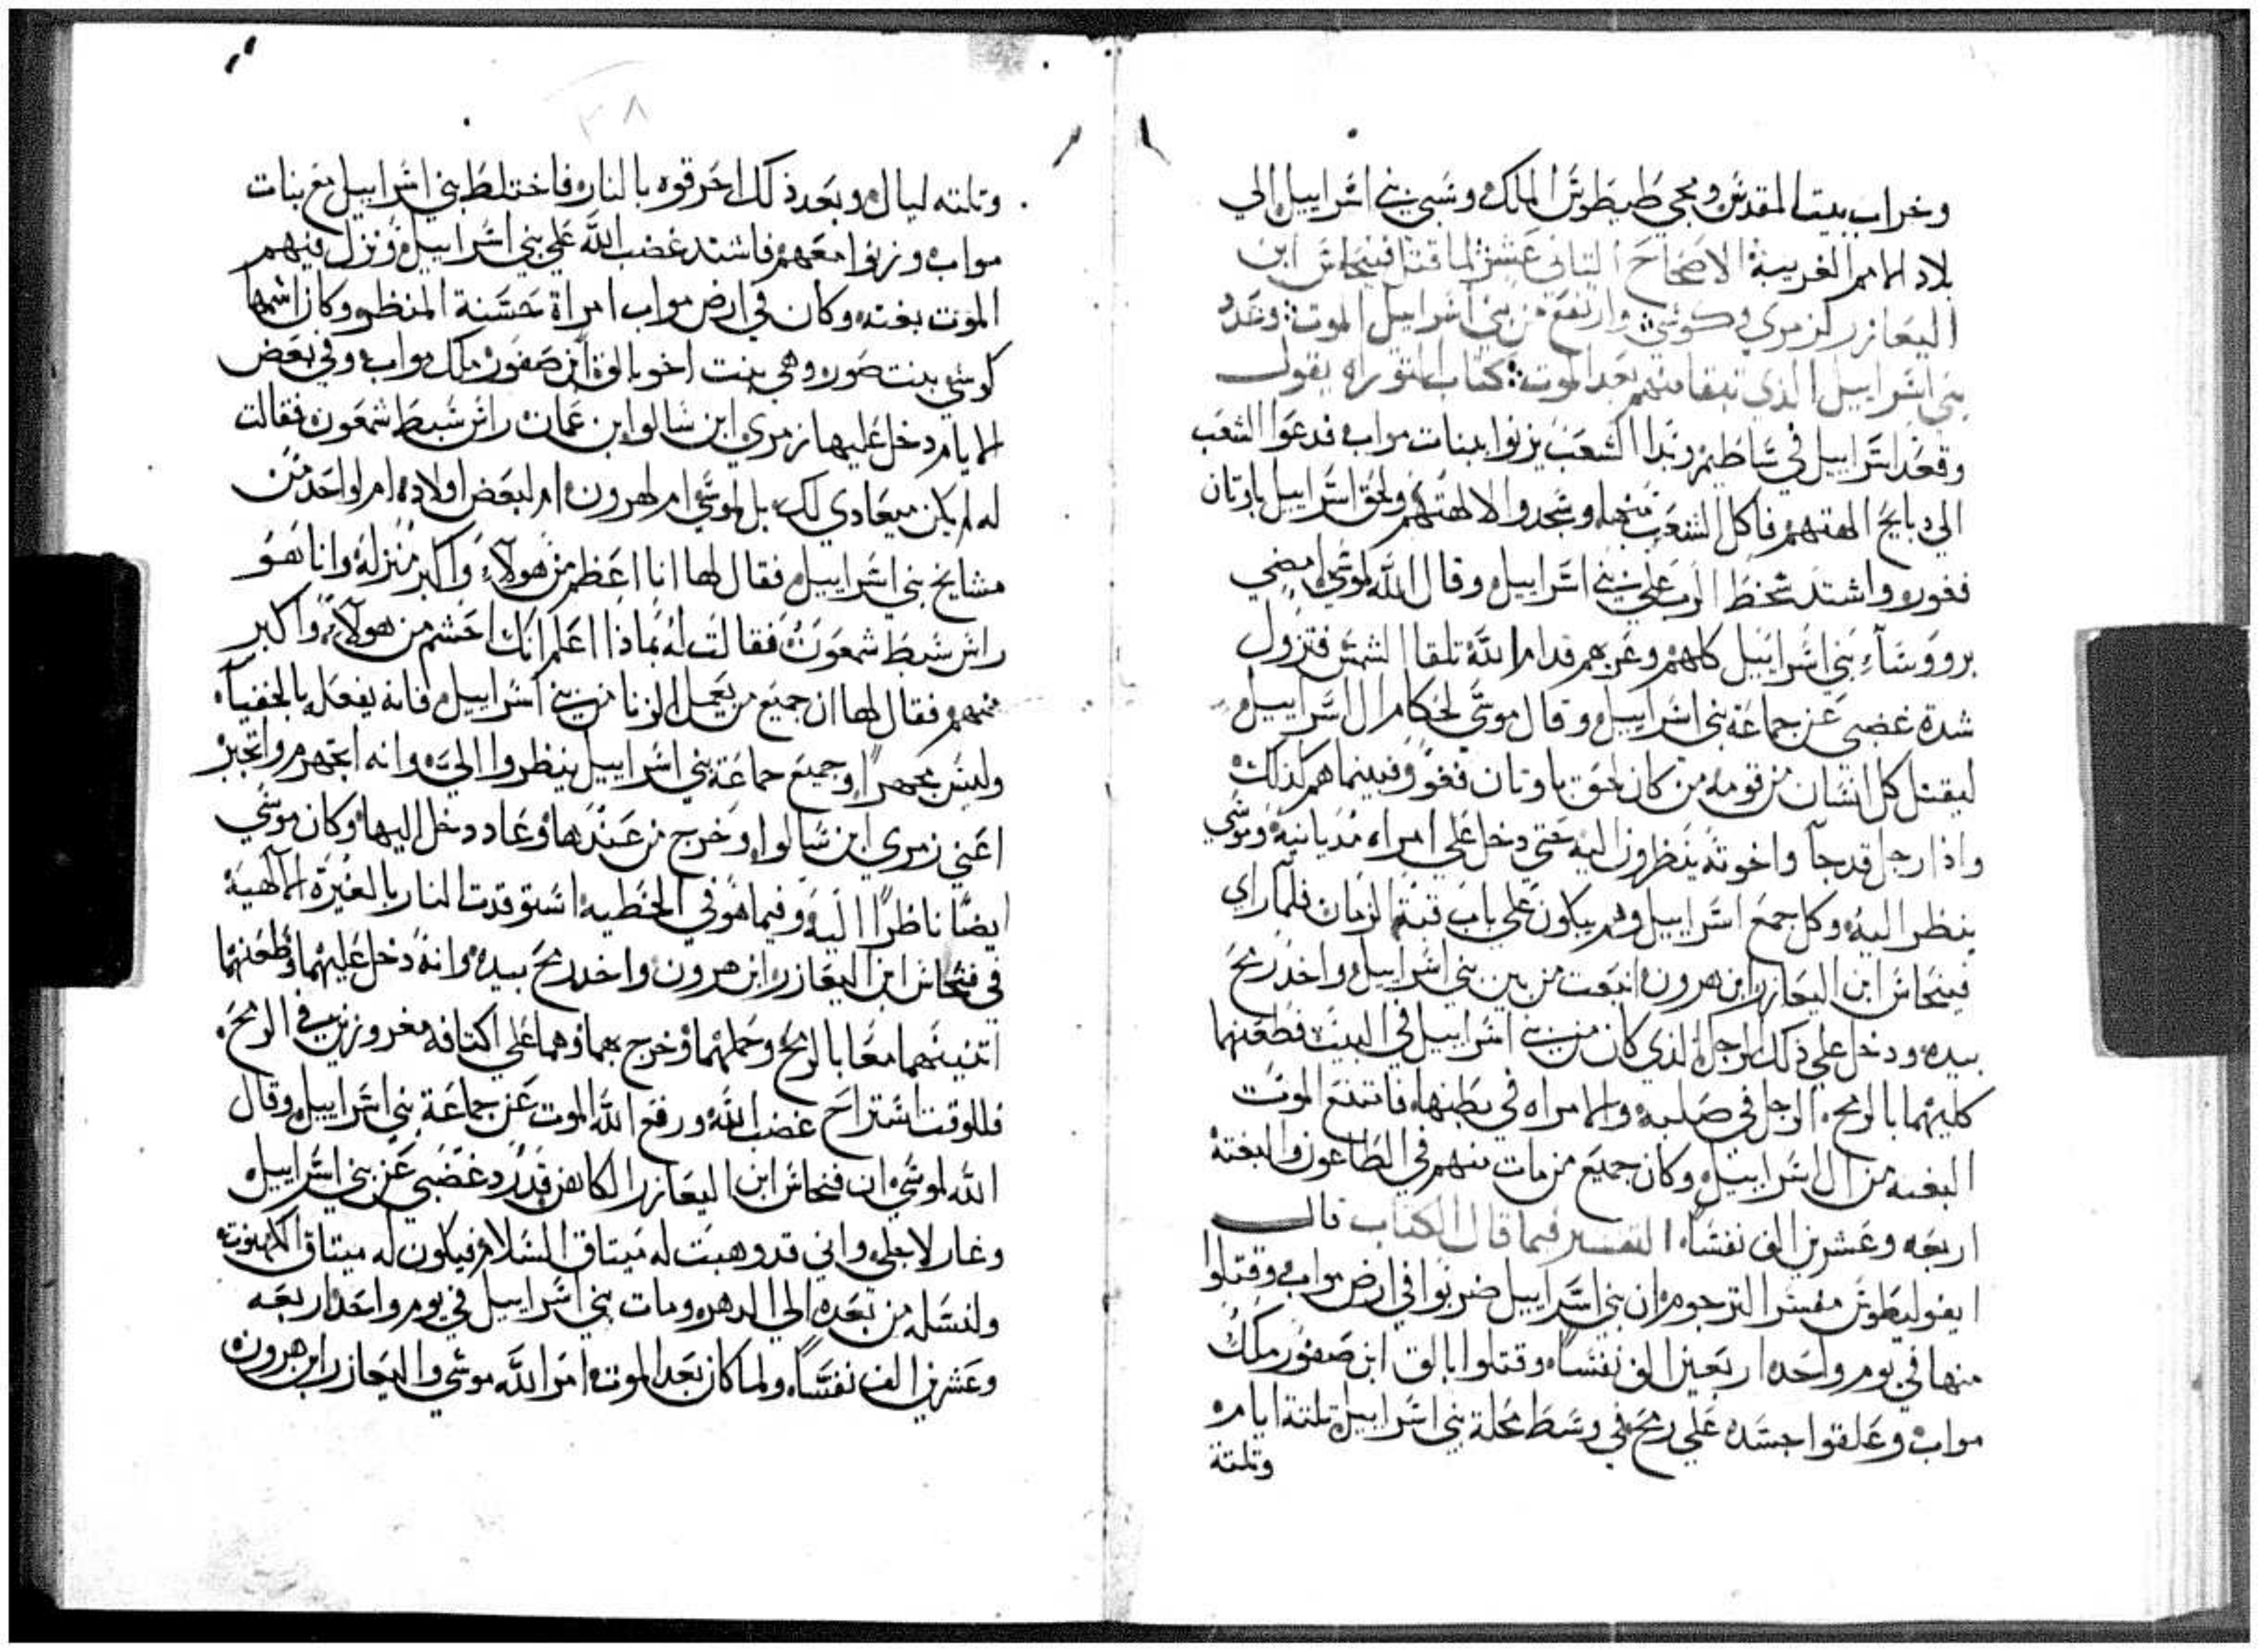 وخراب بيت المقدس ومجي طيطوس الملك وسبي بني اسراييل الي
بلاد الامم الغريبة الاصحاح التاني عشر لما قتل فينحاس ابن
اليعازر لزمري وكوشي وارتفع من بني اسراييل الموت وعدد
بني اسراييل الذي تبقا منهم بعد الموت كتاب التوراه يقول
وقعد اسراييل في ساطيم وبدا الشعب يزنوا ببنات مواب فدعوا الشعب
الي دبايح الهتهم فاكل الشعب منها وسجدوا لالهتهم ولحق اسراييل باوتان
فغور واشتد سخط الرب علي بني اسراييل وقال الله لموسي امضي
بروؤساء بني اسراييل كلهم وعرهم قدام الله تلقا الشمس فتزول
شدة غضبي عن جماعة بني اسراييل وقال موسي لحكام ال اسراييل
ليقتل كل انسان من قومه من كان لحق باوتان فغور وفبينما هم كذلك
واذا رجل قد جآ واخوته ينظرون اليه حتي دخل علي امراه مديانية وموسي
ينظر اليه وكل جمع اسراييل وهم يبكون علي باب قبة الزمان فلما راي
فينحاس ابن اليعازر ابن هرون انبعت من بين بني اسراييل واخد رمح
بيده ودخل علي ذلك الرجل الذي كان من بني اسراييل في البيت فطعنهما
كليهما بالرمح الرجل في صلبه والامراه في بطنها فانتنع الموت
البغته من ال اسراييل وكان جميع من مات منهم في الطاعون والبغتة
اربعه وعشرين الف نفسا التفسير فيما قال الكتاب قال
ايفوليطوس مفسر الترجوم ان بني اسراييل ضربوا في ارض مواب وقتلوا
منها في يوم واحد اربعين الف نفسا وقتلوا بالق ابن صفور ملك
مواب وعلقوا جسده علي رمح في وسط محلة بني اسراييل تلتة ايام
وتلتة
٣٨
وتلته ليال وبعد ذلك احرقوه بالنار فاختلط بني اسراييل مع بنات
مواب وزنوا معهم فاشتد غضب الله علي بني اسراييل ونزل فيهم
الموت بغته وكان في ارض مواب امراة حسنة المنظر وكان اسمها
كوشي بنت صور وهي بنت اخو بالق ابن صفور ملك مواب وفي بعض
الايام دخل عليها زمري ابن سالوا من عمات راس سبط شمعون فقالت
له لم يكن ميعادي لك بل لموسي ام لهرون ام لبعض اولاده ام لواحد من
مشايخ بني اسراييل فقال لها انا اعظم من هولاء واكبر منزلة وانا هو
راس سبط شمعون فقالت له بماذا اعلم انك احشم من هولاء واكبر
منهم فقال لها ان جميع من يعمل الزنا من بني اسراييل فانه يفعله بالخفيآ
وليس بجهرًا وجميع جماعة بني اسراييل ينظروا الي وانه اتجهرم واتجبر
اعني زمري ابن سالوا وخرج من عندها وعاد دخل اليها وكان موسي
ايضًا ناظرًا اليه وفيما هو في الخطيه استوقدت النار بالغيرة الالهية
في فنحاس ابن اليعازر ابن هرون واخد رمح بيده وانه دخل عليهما وطعنهما
اتنينهما معًا بالرمح وحملهما وخرج بهما وهما علي اكتافه مغروزين في الرمح
فللوقت استراح غضب الله ورفع الله الموت عن جماعة بني اسراييل وقال
الله لموسي ان فنحاس ابن اليعازر الكاهن قد رد غضبي عن بني اسراييل
وغار لاجلي واني قد وهبت له ميتاق السلام فيكون له ميتاق الكهنوت
ولنسله من بعده الي الدهر ومات بني اسراييل في يوم واحد اربعه
وعشرين الف نفسًا ولما كان بعد الموت امر الله موسي واليعازر ابن هرون